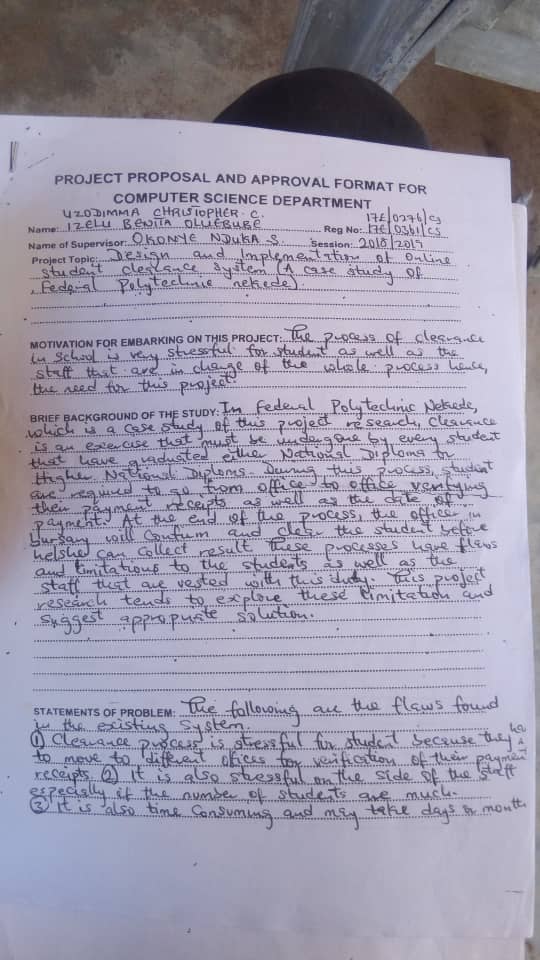 PROJECT PROPOSAL AND APPROVAL FORMAT FOR
COMPUTER SCIENCE DEPARTMENT
UZODIMMA CHRISTOPHER C. 17E/0276/CS
Name: IZELU BENITA OLUEBUBE Reg No: 17E/0361/CS
Name of Supervisor: OKONYE NDUKA S. Session: 2018/2019
Project Topic: Design and Implementation of Online
student clearance system (A case study of
Federal Polytechnic nekede)
MOTIVATION FOR EMBARKING ON THIS PROJECT: The process of clearance
in school is very stressful for student as well as the
staff that are in charge of the whole process hence,
the need for this project.
BRIEF BACKGROUND OF THE STUDY: In Federal Polytechnic Nekede,
which is a case study of this project research, clearance
is an exercise that must be undergone by every student
that have graduated either National Diploma or
Higher National Diploma. During this process, student
are required to go from office to office verifying
their payment receipts as well as the date of
payment. At the end of the process, the officer in
bursary will confirm and clear the student before
he/she can collect result. These processes have flaws
and limitations to the students as well as the
staff that are vested with this duty. This project
research tends to explore these limitation and
suggest appropriate solution.
STATEMENTS OF PROBLEM: The following are the flaws found
in the existing system
(1) Clearance process is stressful for student because they
to move to different offices for verification of their paymen
receipts (2) It is also stressful on the side of the staff
especially if the number of students are much.
(3) It is also time consuming and may take days or month